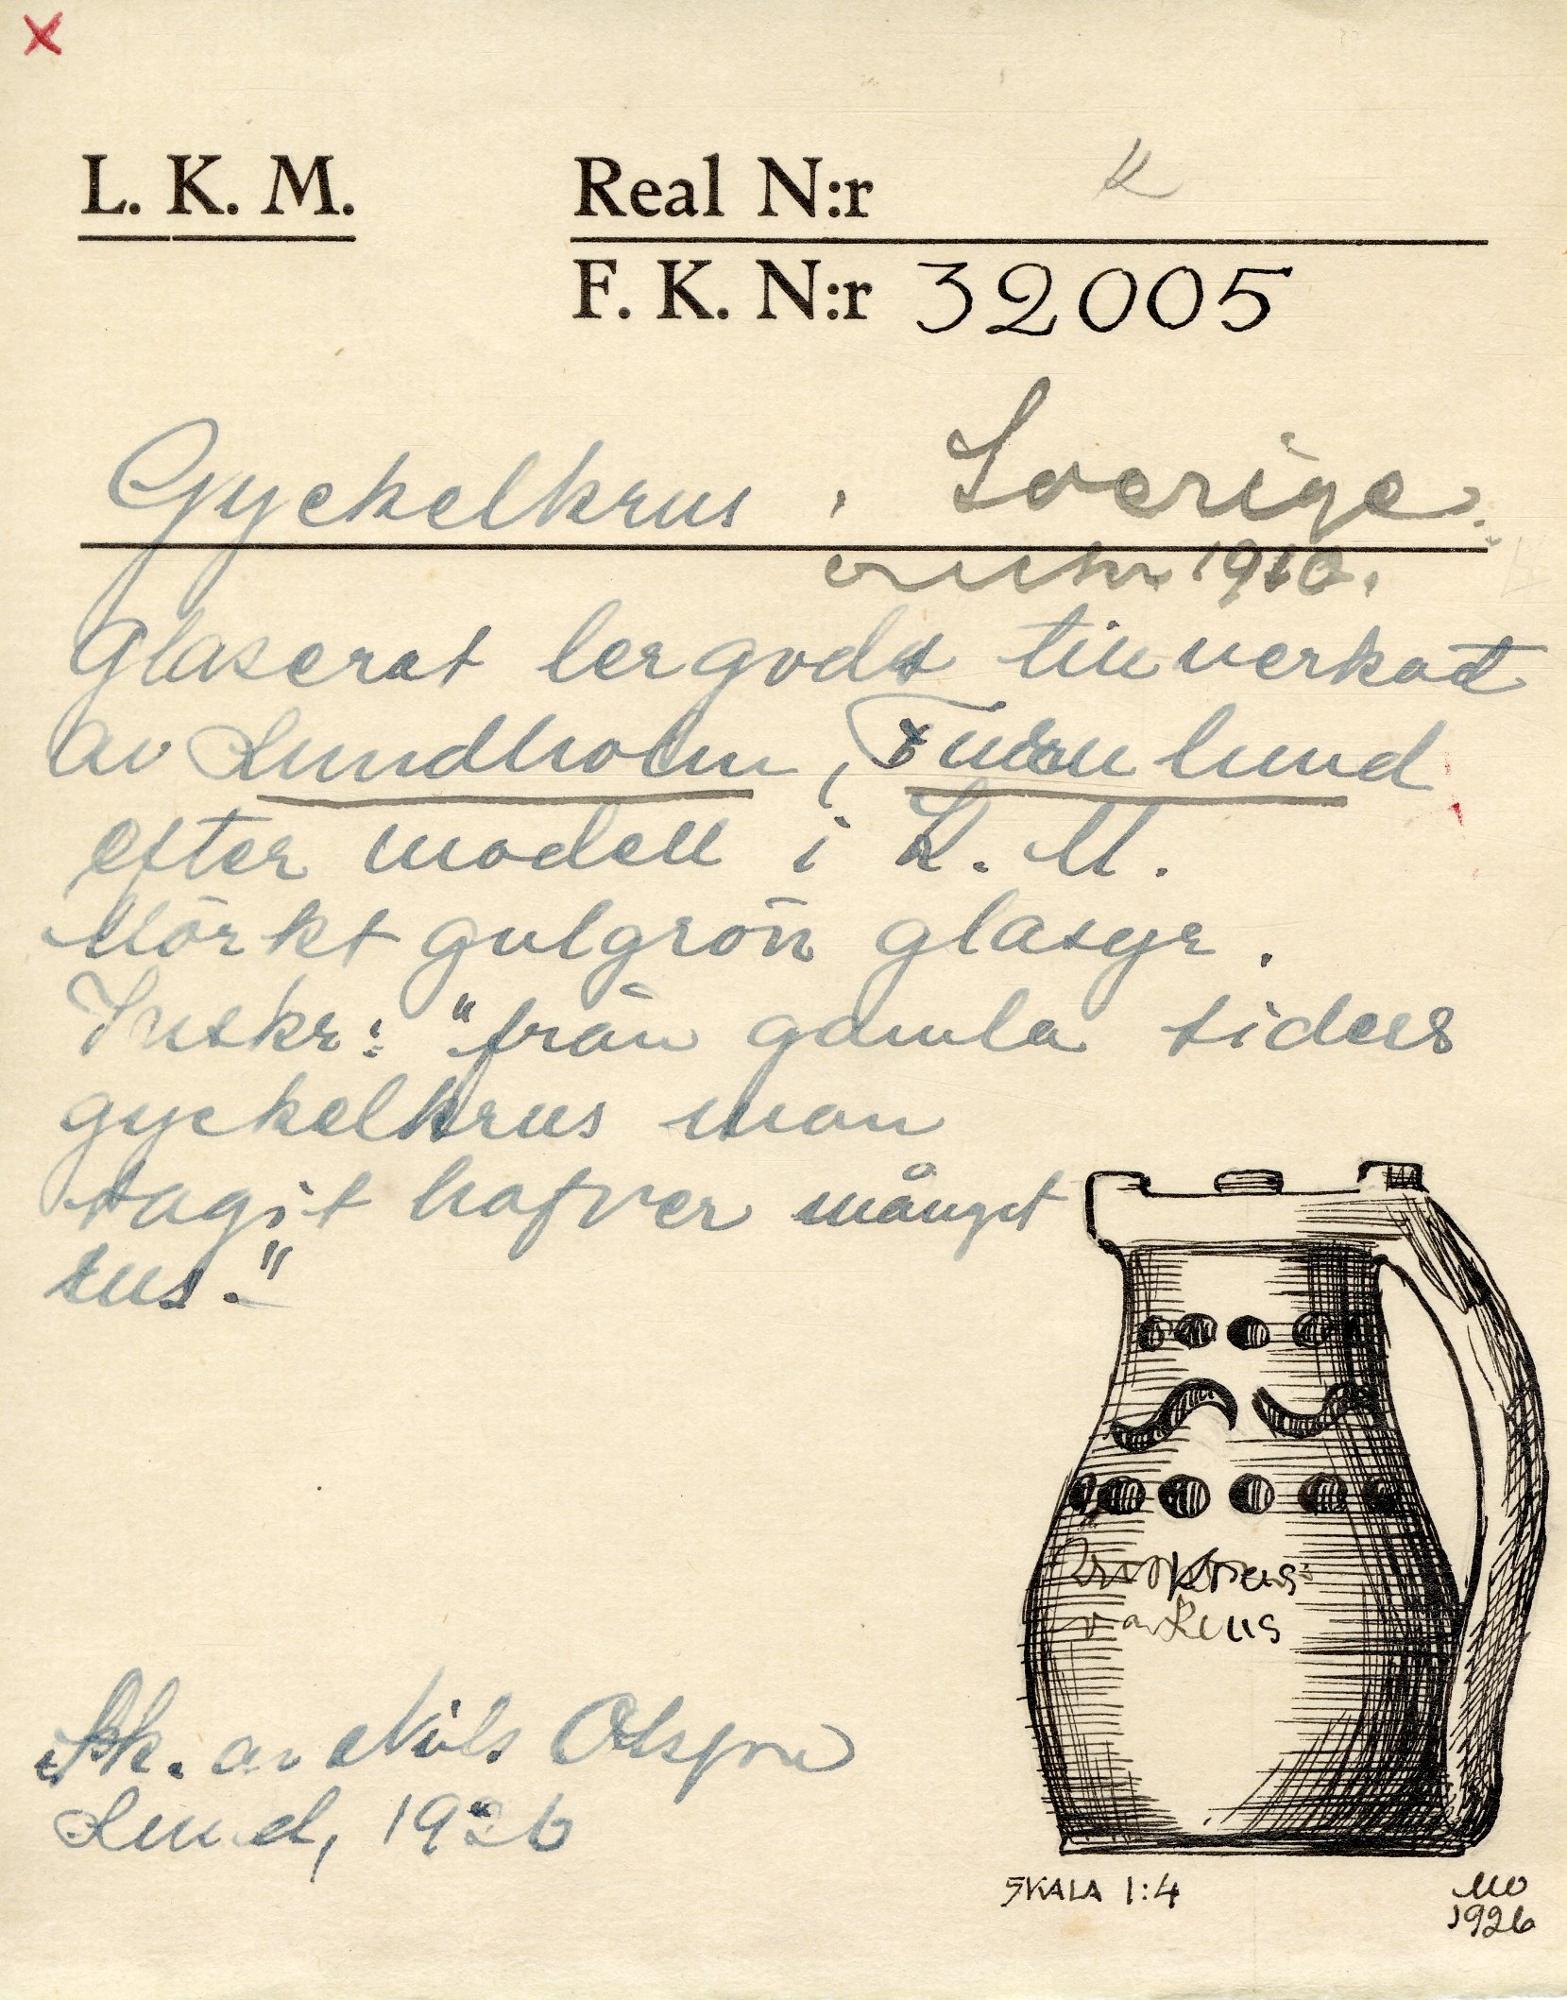 X
L. K. M.
Real N:r K
F. K. N:r 32005
Gyckelkrus, Sverige.
omkr 1910.
Glaserat lergods tillverkat
av Lundholm, Furulund
efter modell i L. M.
Mörkt gulgrön glasyr.
Inskr: "från gamla tiders
gyckelkrus man
tagit hafver månget
rus."
Sk. av Nils Olsson
Lund, 1926
SKALA 1:4
1926